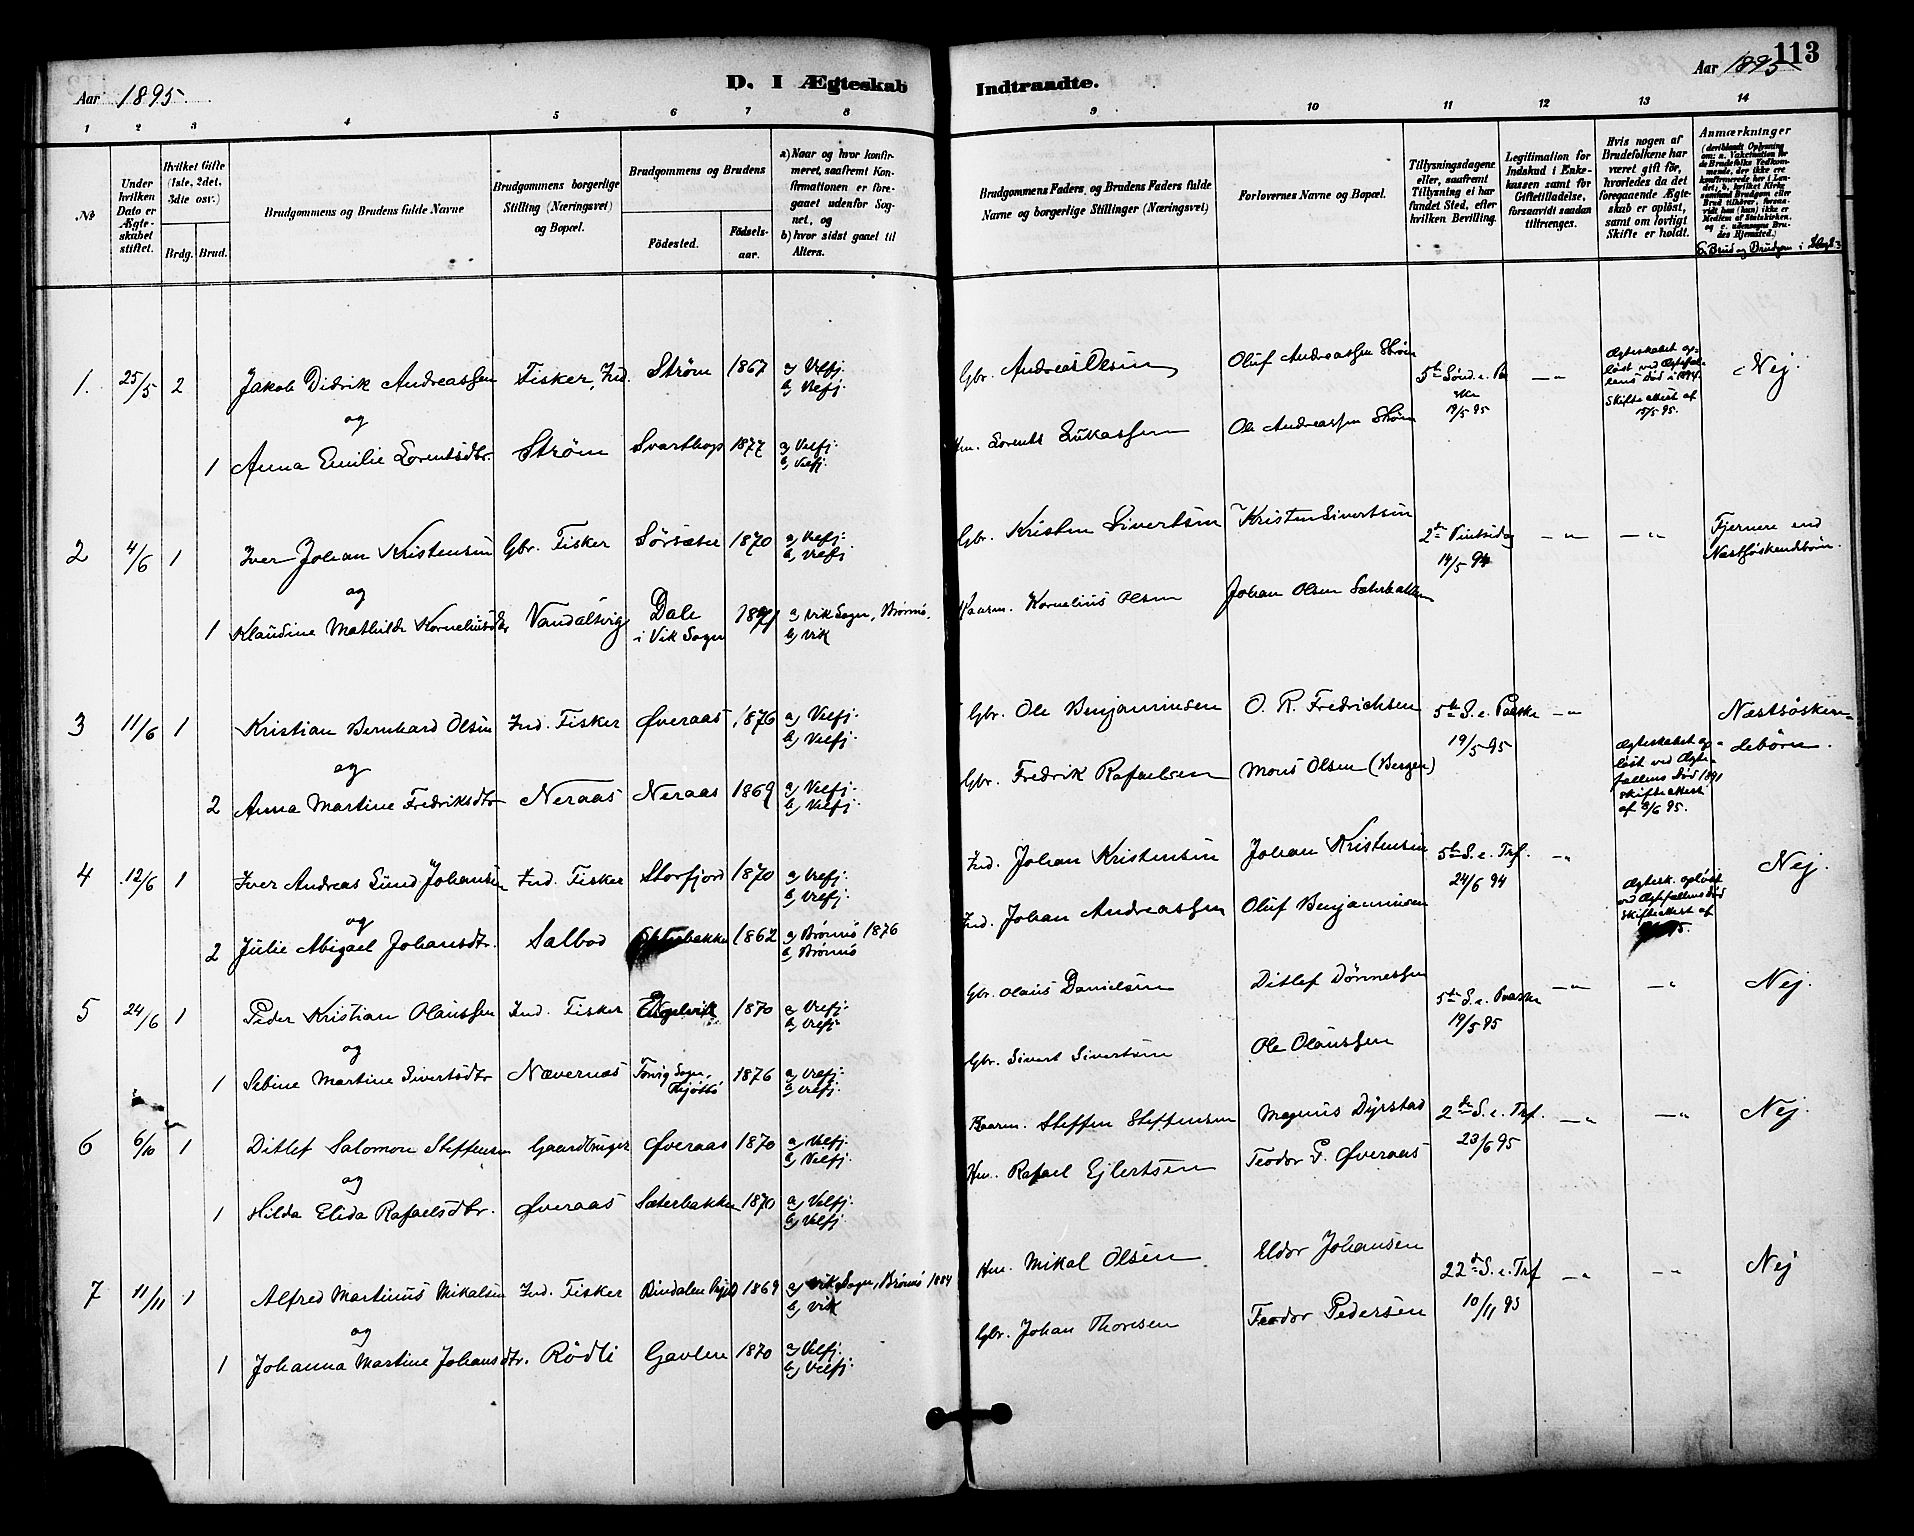 Aar 1895
D. I Ægteskab
Indtraadte.
Aar 1895
113
1 2 3 4 5 6 7 8
9 10 11 12 13 14
№
Under hvilken Dato er Ægteskabet stiftet.
Hvilket Gifte (1ste, 2det, 3die osv.)
Brdg. Brud.
Brudgommens og Brudens fulde Navne
Brudgommens borgerlige Stilling (Næringsvei) og Bopæl.
Brudgommens og Brudens
Födested.
Födselsaar.
a) Naar og hvor konfirmeret, saafremt Konfirmationen er foregaaet udenför Sognet, og
b) hvor sidst gaaet til Alters.
Brudgommens Faders og Brudens Faders fulde Navne og borgerlige Stillinger (Næringsvei)
Forlovernes Navne og Bopæl.
Tillysningsdagene eller, saafremt Tillysning ei har fundet Sted, efter hvilken Bevilling.
Legitimation for Indskud i Enkekassen samt for Giftetilladelse, forsaavidt saadan tiltrænges.
Hvis nogen af Brudefolkene har været gift för, hvorledes da det foregaaende Ægteskab er oplöst, samt om lovligt Skifte er holdt.
Anmærkninger
(deriblandt Oplysning om: a. Vaksination for de Brudefolks Vedkommende, der ikke ere konfirmerede her i Landet, b. hvilket Kirkesamfund Brudgom eller Brud tilhörer, forsaavidt han (hun) ikke er Medlem af Statskirken, og c. udensogns Brudes Hjemsted.)
1. 25/5 2 Jakob Didrik Andreassen Fisker, Ind. Strøm 1867 a, Velfj. b, Velfj. Gbr. Andreas Olsen Oluf Andreassen Strøm 5te Sønd. e. Paaske 19/5 95 —"— Ægteskabet opløst ved Ægtefællens død i 1894. Skifteattest af 15/5 95. Nej.
og
1 Anna Emilie Lorentsdtr. Strøm Svarthop 1877 a, Velfj. b, Velfj. Hm. Lorents Lukassen Ole Andreassen Strøm
2 4/6 1 Iver Johan Kristensen Gbr. Fisker Sørsæter 1870 a, Velfj. b, Velfj. Gbr. Kristen Sivertsen Kristen Sivertsen 2den Pintsedag 14/5 94 —"— —"— Fjernere end Næstsøskendebørn.
og
1 Klaudine Mathilde Korneliusdtr Vandalsvig Dale i Vik Sogn 1871 a, Vik Sogn, Brønnø. b, Vik Kaarm. Kornelius Olsen Johan Olsen Sæterbakken
3 11/6 1 Kristian Bernhard Olsen Ind. Fisker Øveraas 1876 a, Velfj. b, Velfj. Gbr. Ole Benjaminsen O. R. Fredrichsen 5te S. e. Paaske 19/5 95 —"— Næstsøskendebørn.
og
2 Anna Martine Fredriksdtr Neraas Neraas 1869 a, Velfj. b, Velfj. Gbr. Fredrik Rafaelsen Mons Olsen (Bergen) Ægteskabet opløst ved Ægtefællens død 1891 skifteattest af 3/6 95.
4 12/6 1 Iver Andreas Sund Johansen Ind. Fisker Storfjord 1870 a, Velfj. b, Velfj. Ind. Johan Kristensen Johan Kristensen 5te S. e. Tref. 24/6 94 —"— Nej.
og
2 Julie Abigael Johansdtr. Salbod Sæterbakke 1862 a, Brønnø 1876 b, Brønnø Ind. Johan Andreassen Oluf Benjaminsen Ægtesk. opløst ved Ægtefællens død skifteattest af
5 24/6 1 Peder Kristian Olaussen Ind. Fisker 1870 a, Velfj. b, Velfj. Gbr. Olaus Danielsen Ditlef Dønnessen 5te S. e. Paaske 19/5 95 —"— —"— Nej.
og
1 Sebine Martine Sivertsdtr Nævernes Sogn, 1876 a, Velfj. b, Velfj. Gbr. Sivert Sivertsen Ole Olaussen
6 6/10 1 Ditlef Salomon Steffensen Gaardbruger Øveraas 1870 a, Velfj. b, Velfj. Kaarm. Steffen Steffensen Magnus Dyrstad 2den S. e. Tref. 23/6 95 —"— —"— Nej.
og
1 Hilda Elida Rafaelsdtr. Øveraas Sæterbakken 1870 a, Velfj. b, Velfj. Hm. Rafael Ejlertsen Teodor P. Øveraas
7 11/11 1 Alfred Martinus Mikalsen Ind. Fisker Bindalen 1869 a, Vik Sogn, Brønnø 1884 b, Vik Hm. Mikal Olsen Eldor Johansen 22de S. e. Tref 10/11 95 —"— —"— Nej
og
1 Johanna Martine Johansdtr. Rødli Gavlen 1870 a, Velfj. b, Velfj. Gbr. Johan Thoresen Teodor Pedersen